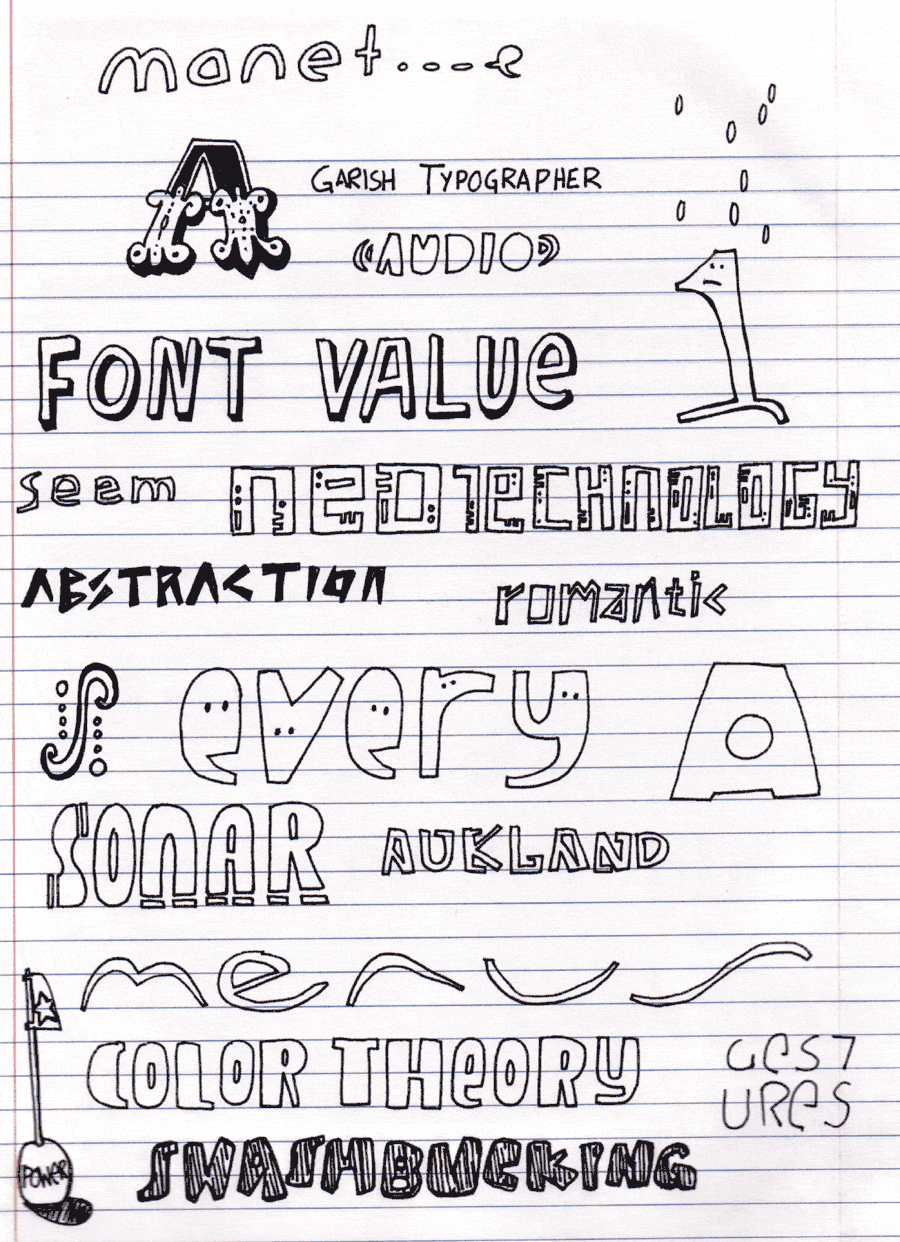 manet...e
A
GARISH TYPOGRAPHER
((AUDIO))
FONT VALUe
1
seem neoTeCHNOLOGY
ABSTRACTION romantic
S every A
SOnAR AUKLAND
menus
COLOR THeORY
GesT
URes
POWER
SWASHBUCKING